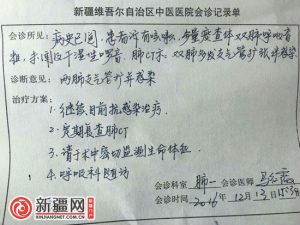 新疆维吾尔自治区中医医院会诊记录单
会诊所见: 病史已阅, 患者诉有咳嗽, 少量痰查体双肺呼吸音
粗, 未闻及干湿性啰音. 肺CT示: 双肺多发支气管扩张并感染
诊断意见: 两肺支气管扩并感染
治疗方案:
1. 继续目前抗感染治疗.
2. 定期复查肺CT
3. 请于术中密切监测生命体征
4. 呼吸科随访
会诊科室: 肺一 会诊医师
会诊时间: 2016 年 12 月 13 日 15:38
新疆网
XINJIANGNET.COM.CN